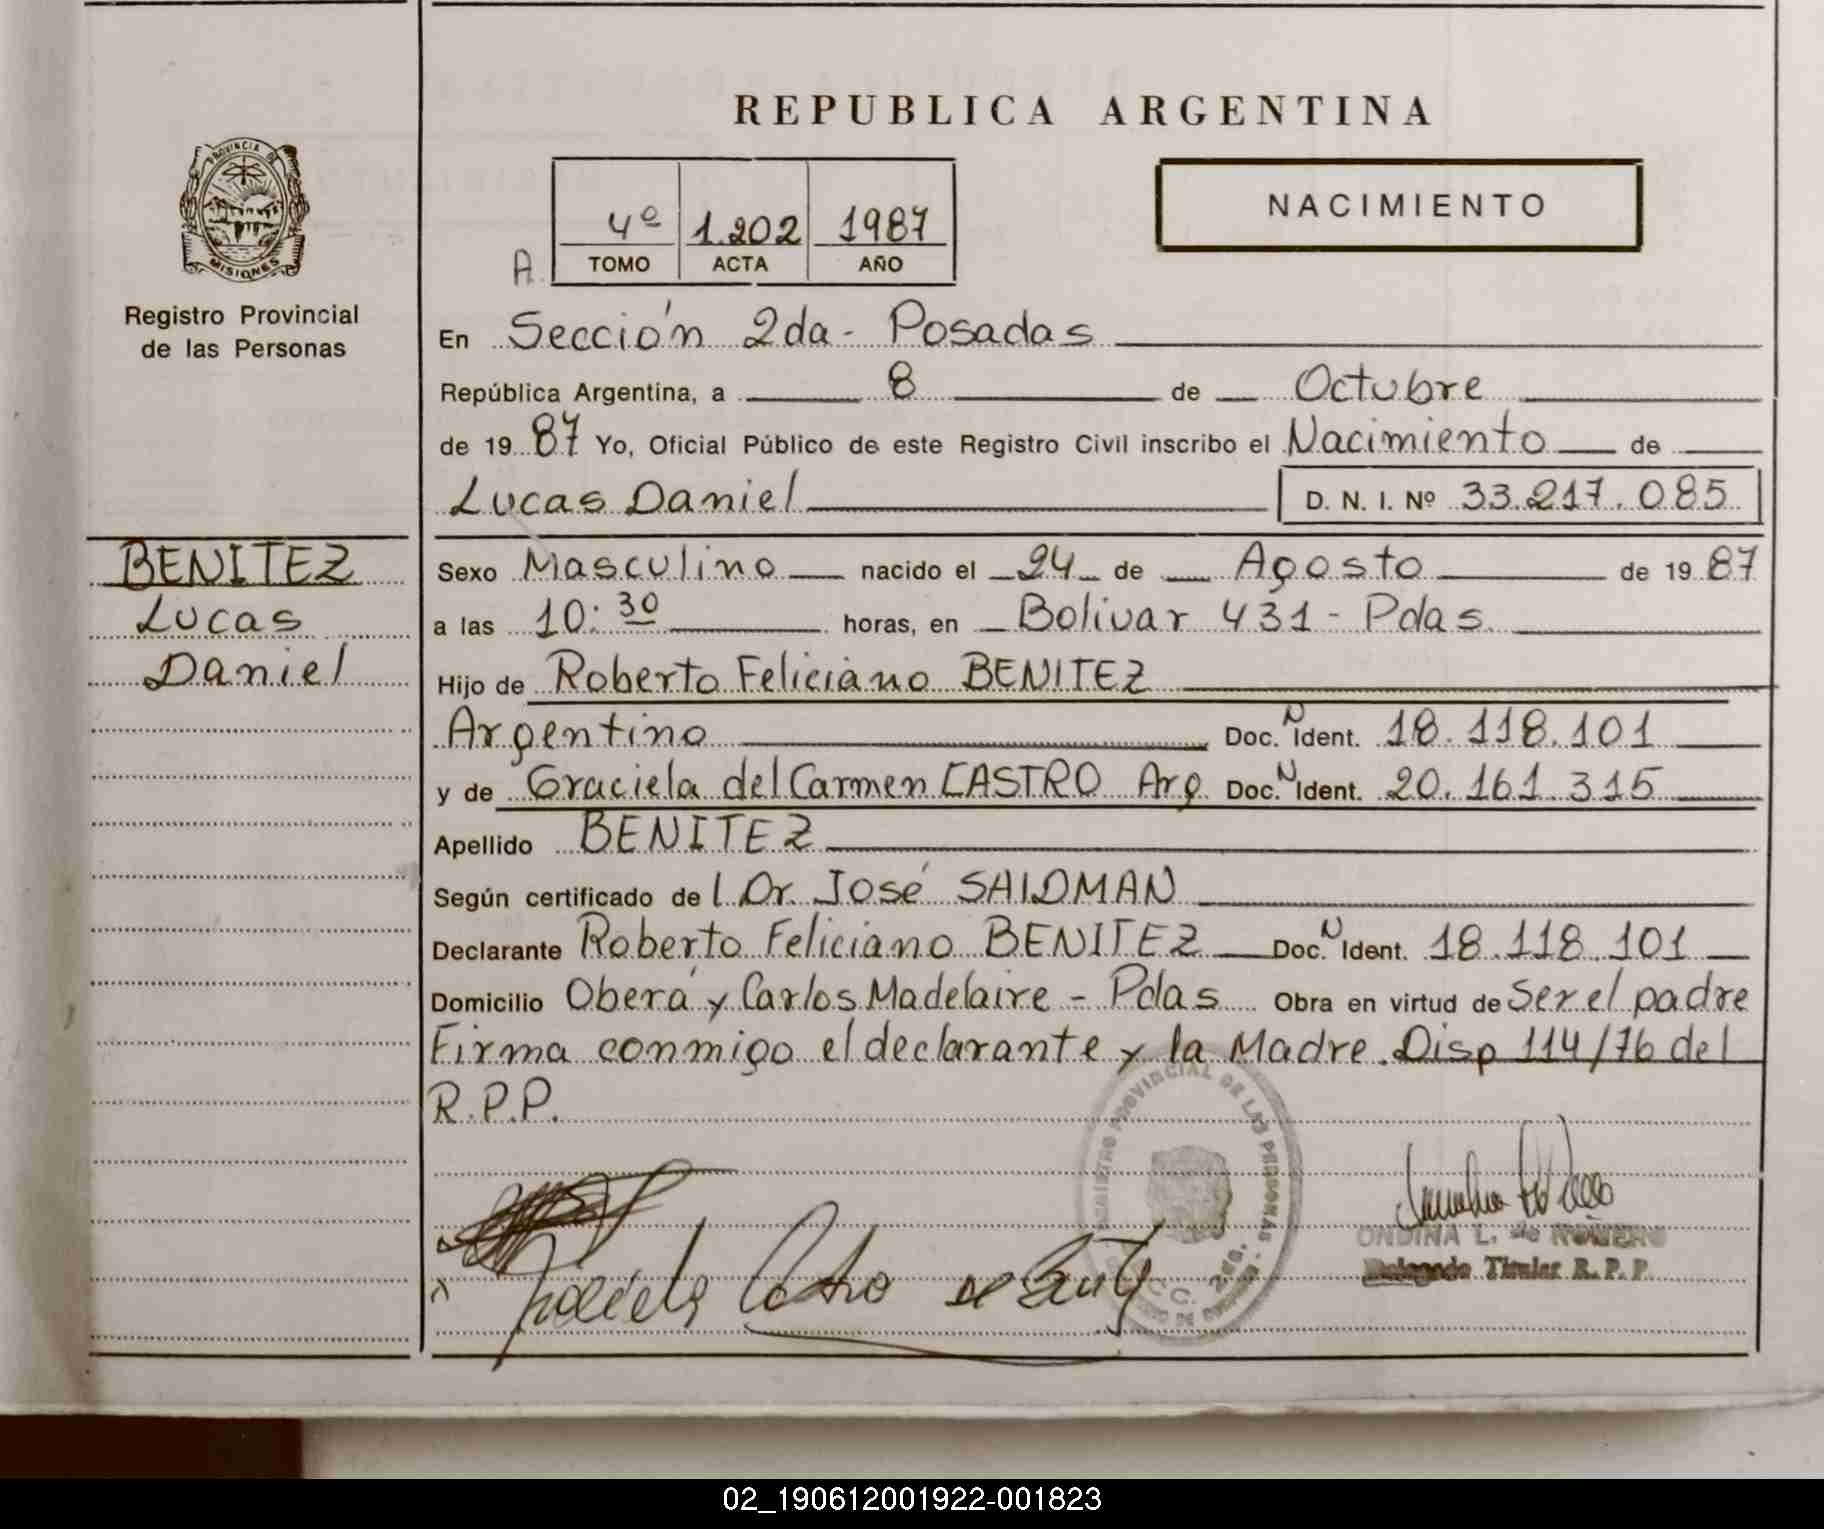 REPUBLICA ARGENTINA
PROVINCIA DE
MISIONES
Registro Provincial
de las Personas
A
4º 1.202 1987
TOMO ACTA AÑO
NACIMIENTO
En Sección 2da - Posadas
República Argentina, a 8 de Octubre
de 19 87 Yo, Oficial Público de este Registro Civil inscribo el Nacimiento de
Lucas Daniel D. N. I. Nº 33.217.085
BENITEZ
Lucas
Daniel
Sexo Masculino nacido el 24 de Agosto de 19 87
a las 10:30 horas, en Bolivar 431 - Pdas.
Hijo de Roberto Feliciano BENITEZ
Argentino Doc. N Ident. 18.118.101
y de Graciela del Carmen CASTRO Arg. Doc. N Ident. 20.161.315
Apellido BENITEZ
Según certificado de l Dr. José SAIDMAN
Declarante Roberto Feliciano BENITEZ Doc. N Ident. 18.118.101
Domicilio Oberá y Carlos Madelaire - Pdas Obra en virtud de Ser el padre
Firma conmigo el declarante y la Madre. Disp 114/76 del
R.P.P.
REGISTRO PROVINCIAL DE LAS PERSONAS
Graciela Castro de Benitez
ONDINA L. de ROMERO
Delegado Titular R. P. P.
02_190612001922-001823